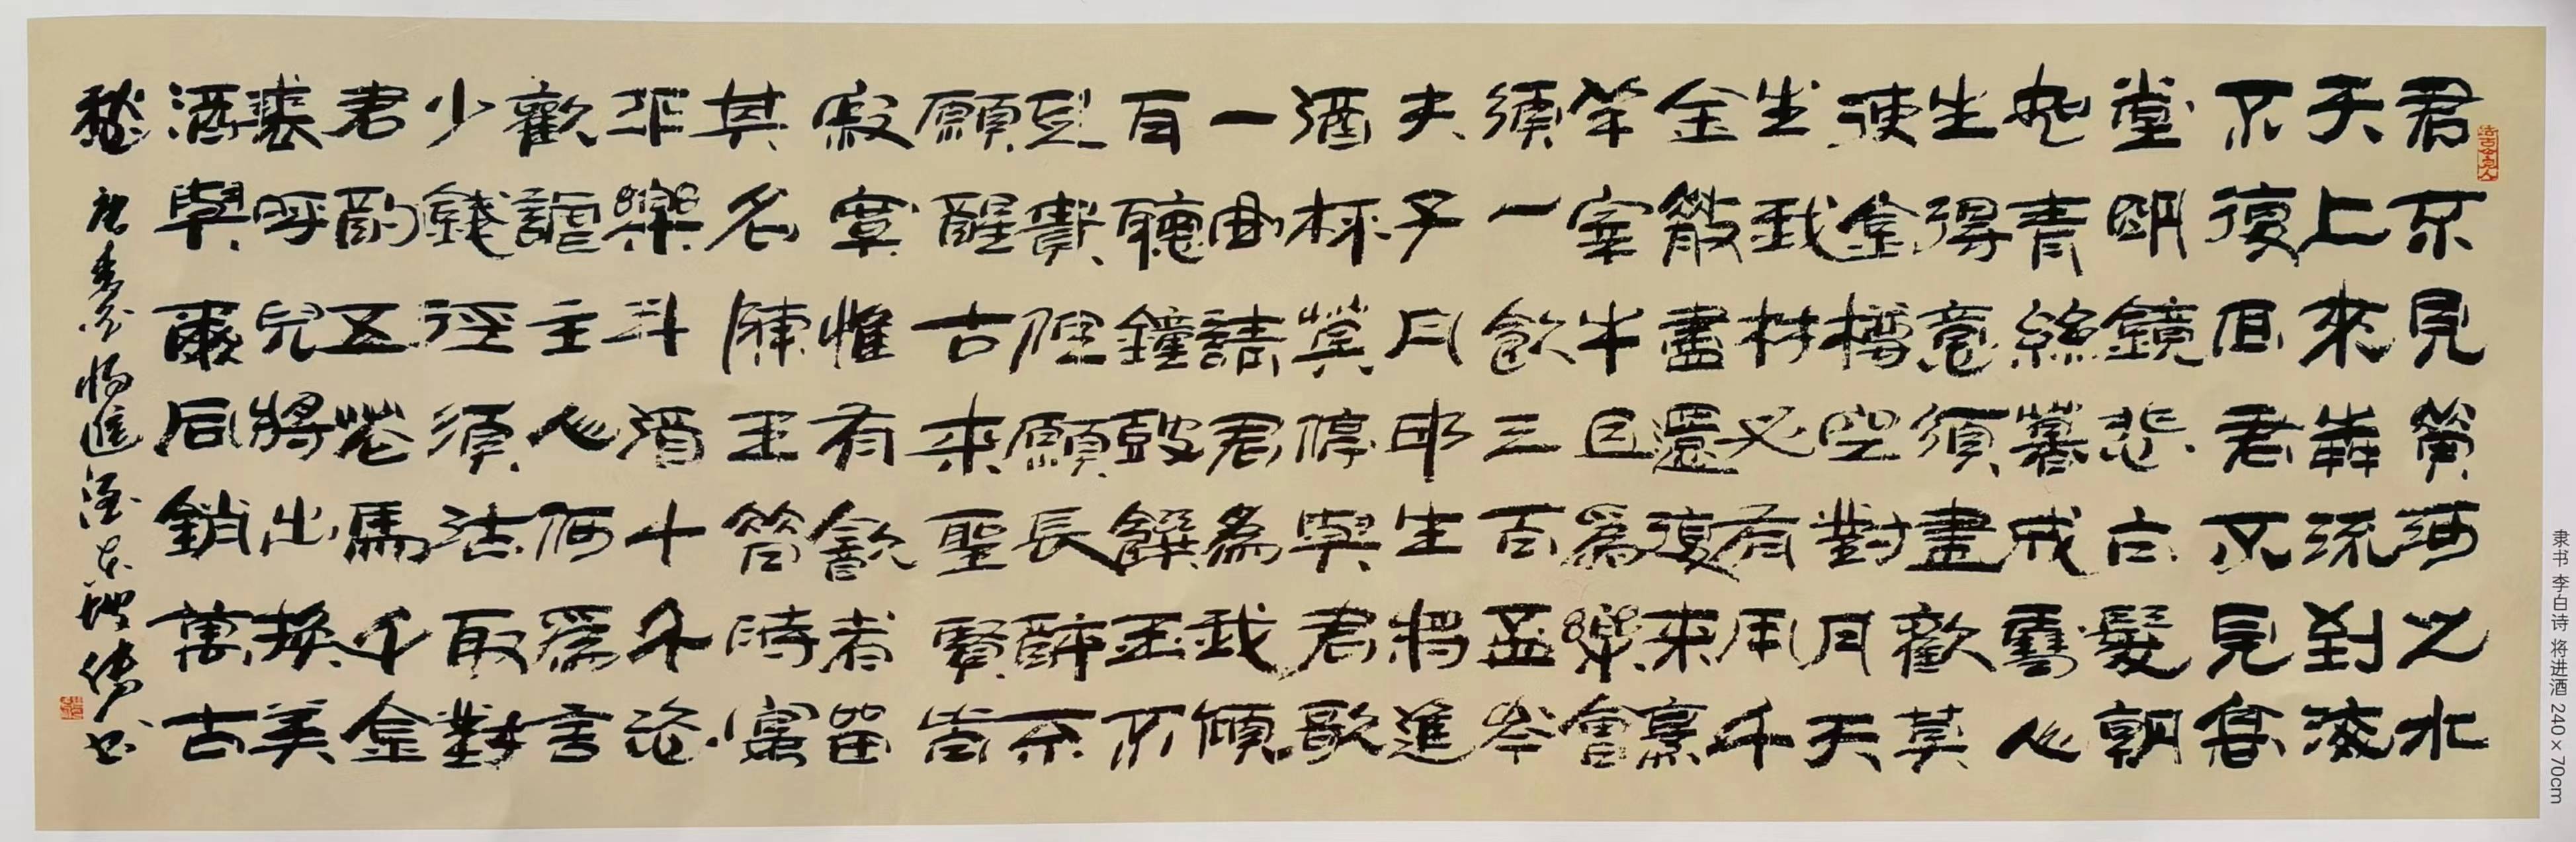 君不見黃河之水
天上來奔流到海
不復回君不見高
堂明鏡悲白髮朝
如青絲暮成雪人
生得意須盡歡莫
使金樽空對月天
生我材必有用千
金散盡還復來烹
羊宰牛且爲樂會
須一飲三百盃岑
夫子丹邱生將進
酒杯莫停與君歌
一曲請君為我傾
耳聽鐘鼓饌玉不
足貴但願長醉不
願醒古來聖賢皆
寂寞惟有飲者留
其名陳王昔時宴
平樂斗酒十千恣
歡謔主人何為言
少錢徑須沽取對
君酌五花馬千金
裘呼兒將出換美
酒與爾同銷萬古
愁 唐李白将進酒 书
隶书 李白诗 将进酒 240×70cm